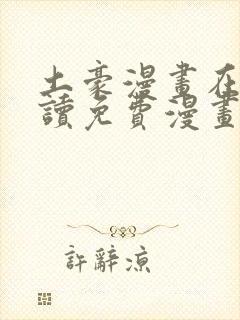 土豪漫畫在
讀免費漫畫
許辭涼